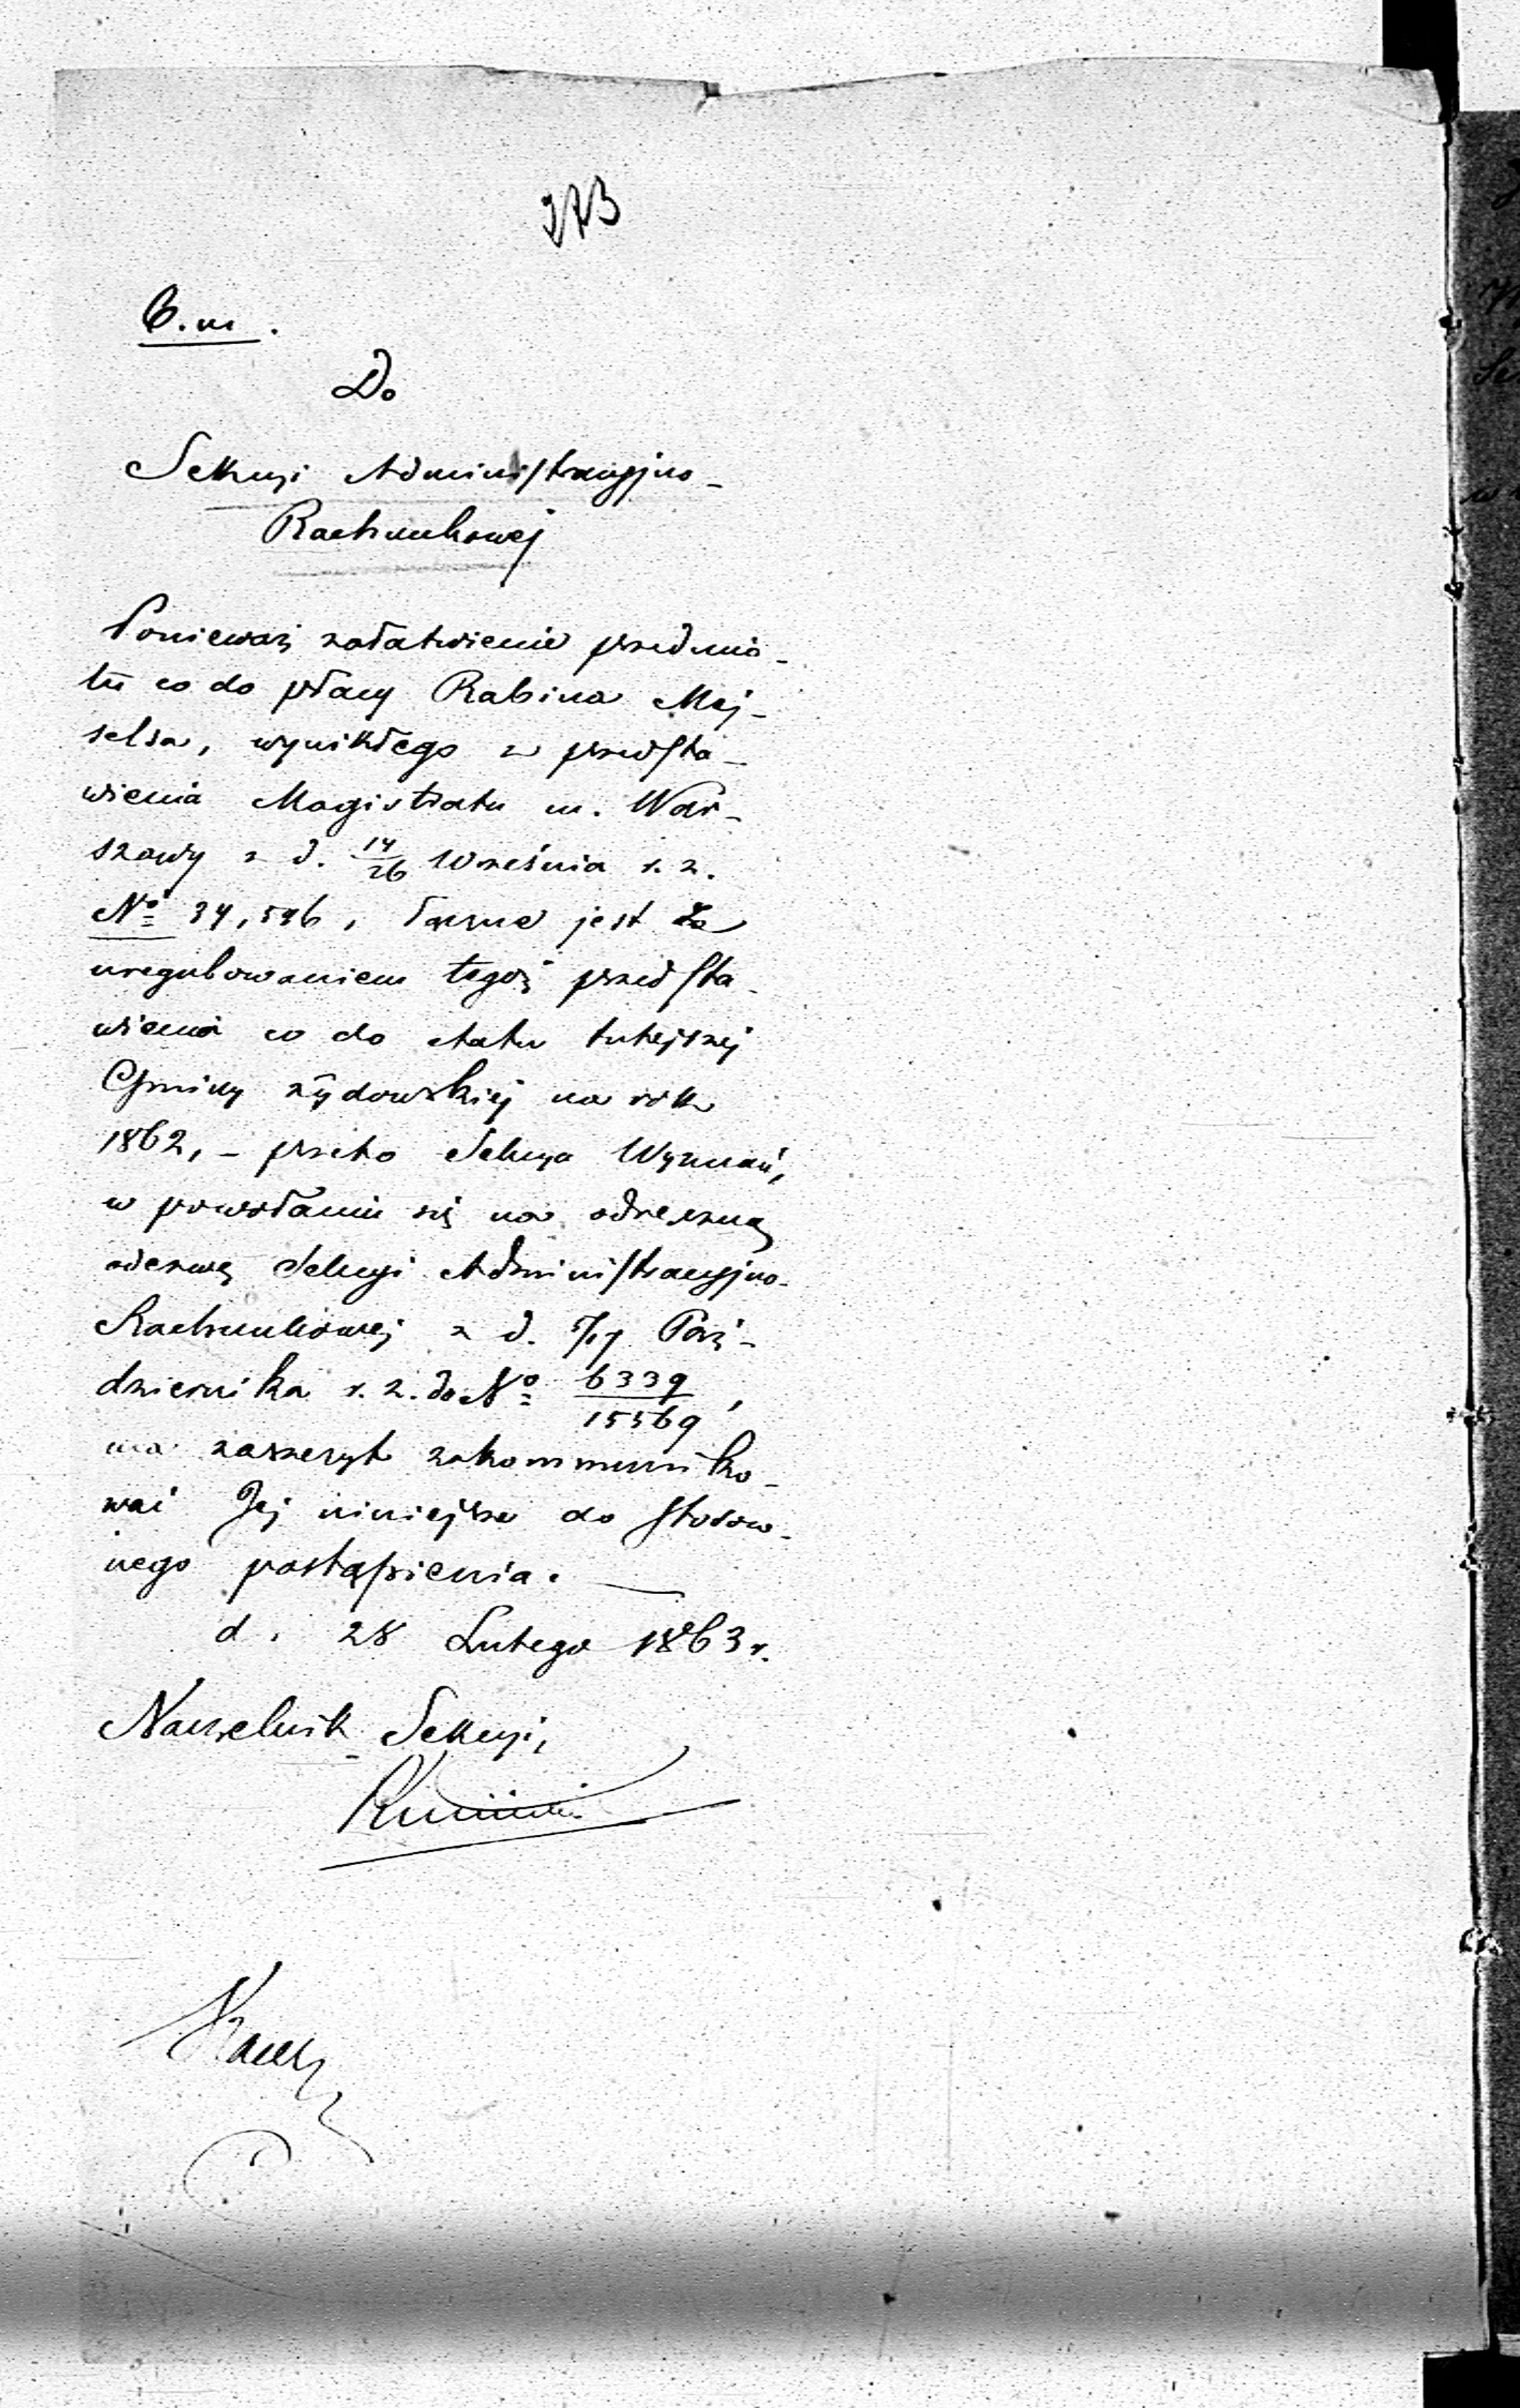 273
B. m.
Do
Sekcyi Administracyjno-
Rachunkowej
Ponieważ załatwienie przedmio-
tu co do płacy Rabina Mej-
selsa, wynikłego z przedsta-
wienia Magistratu m. War-
szawy z d. 14/26 Września r. z.
No 34,596, łączne jest za
uregulowaniem tegoż przedsta-
wienia co do etatu tutejszej
Gminy żydowskiej na rok
1862, - przeto Sekcya Wyznań,
w powołaniu się na odręczną
odezwę Sekcyi Administracyjno-
Rachunkowej z d. 5/17 Paź-
dziernika r. z. do No 6339/15569,
ma zaszczyt zakommuniko-
wać Jej niniejsze do stosow-
nego postąpienia. —
d. 28 Lutego 1863 r.
Naczelnik Sekcyi,